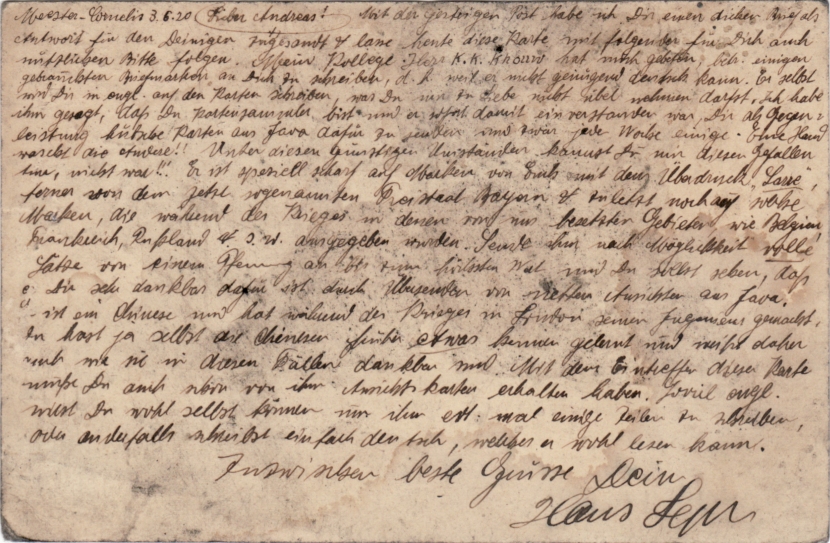 Meester-Cornelis 3.6.20 Lieber Andreas! Mit der gestrigen Post habe ich Dir einen dicken Brief als
Antwort für den Deinigen zugesandt & lasse heute diese Karte mit folgender für Dich auch
nützlichen Bitte folgen. Mein Kollege Herr K.K. Khouw hat mich gebeten, betr. einigen
gebrauchten Briefmarken an Dich zu schreiben, d.h. weil er nicht genügend deutsch kann. Er selbst
wird Dir in engl. auf den Karten schreiben, was Du mir zu Liebe nicht übel nehmen darfst, ich habe
ihm gesagt, daß Du Kartensammler bist und er sofort damit einverstanden war, Dir als Gegen=
leistung hübsche Karten aus Java dafür zu senden und zwar jede Woche einige. Eine Hand
wascht die Andere!! Unter diesen günstigen Umständen kannst Du mir diesen Gefallen
tun, nicht war!!! Er ist speziell scharf auf Marken von mit dem Überdruck "Sarre",
ferner von dem jetzt sogenannten Freistaat Bayern & zuletzt noch auf solche
Marken, die während des Krieges in denen von uns besetzten Gebieten, wie Belgien,
Frankreich, Rußland u.s.w. ausgegeben wurden. Sende ihm nach Möglichkeit volle
Sätze von einem Pfennig an bis zum höchsten Wert und Du sollst sehen, daß
e Dir sehr dankbar dafür ist durch Übersenden von netten Ansichten aus Java.
ist ein Chinese und hat während des Krieges in seinen Ingenieur gemacht.
Du hast ja selbst die Chinesen früher etwas kennen gelernt und weißt daher
auch wie sie in diesen Fällen dankbar sind. Mit dem Eintreffen dieser Karte
mußt Du auch schon von ihm Ansichtskarten erhalten haben. Soviel engl.
wirst Du wohl selbst können um ihm evt. mal einige Zeilen zu schreiben,
oder anderfalls schreibst einfach deutsch, welches er wohl lesen kann.
Inzwischen beste Grüsse Dein
Hans